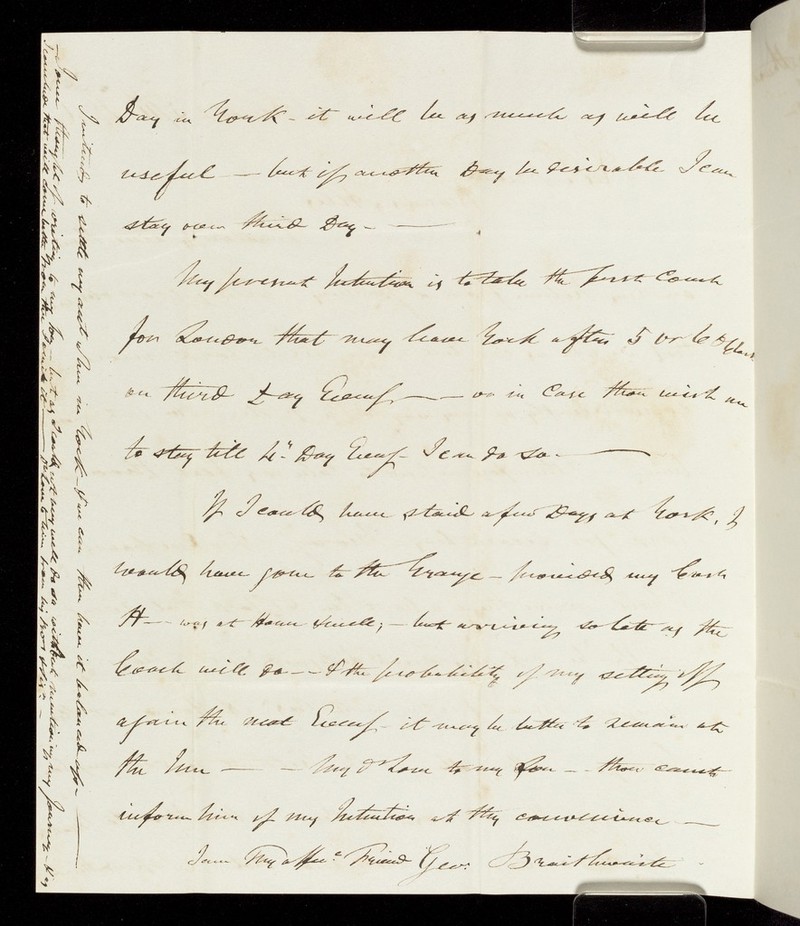 Day in York - it will be as much as will be
useful — but if another Day be desirable I can
stay over third Day - —
My present Intention is to take the first Coach
for London that may leave York after 5 or 6 o'Clock
on third Day Eveng — — or in Case thou wish me
to stay till 4th Day Eveng I can do so. —
If I could have staid a few Days at York, I
would have gone to the Grange - provided my Cosn
H— was at Home &c; - but arriving so late as the
Coach will do — & the probability of my setting off
again the next Eveng it may be better to remain at
the Inn — — My dr Love to my Son — thou canst
inform him of my Intention at thy convenience —
I am Thy affece Friend Geo: Braithwaite
I intend to settle my acct when in York - & we can then have it balanced off —
I have thought of writing to my Son - but as I could not very well do so without mentioning my Journey - & as
I conclude that will come better from thee I omit it —